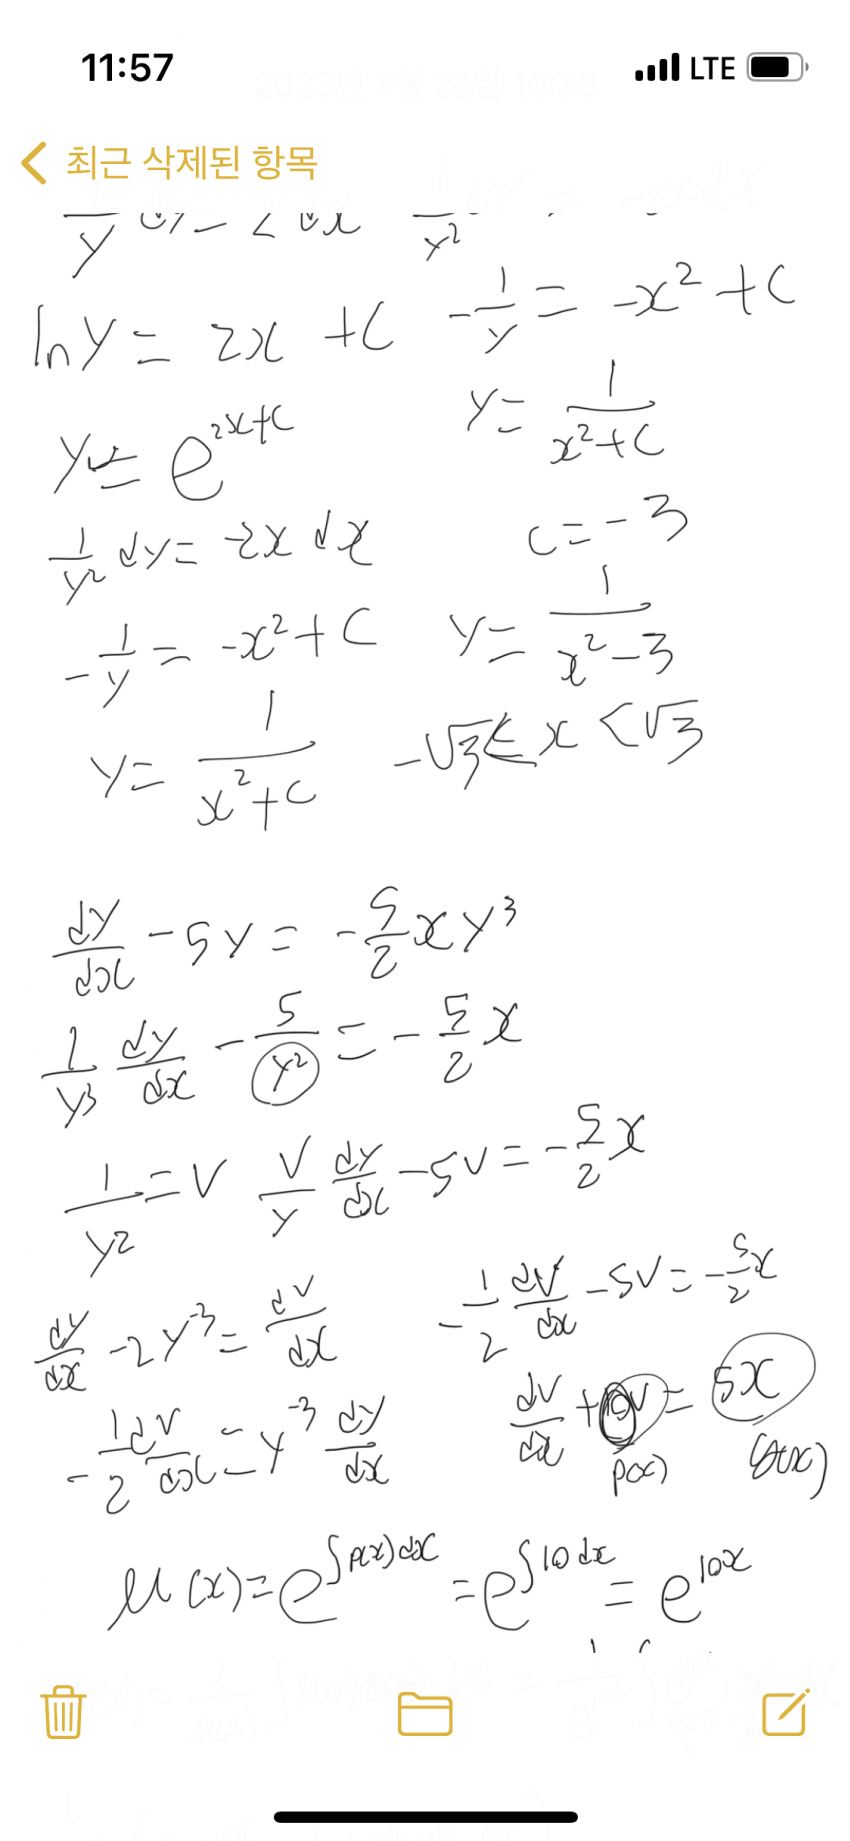 11:57 LTE
최근 삭제된 항목
ln y = 2x + C
-1/y = -x² + C
y = e^(2x+C)
y = 1/(x²+C)
1/y² dy = -2x dx
C = -3
-1/y = -x² + C
y = 1/(x²-3)
y = 1/(x²+C)
-√3 < x < √3
dy/dx - 5y = -5/2 xy³
1/y³ dy/dx - 5/y² = -5/2 x
1/y² = V V/y dy/dx - 5V = -5/2 x
dy/dx -2y⁻³ = dV/dx
-1/2 dV/dx - 5V = -5/2 x
-1/2 dV/dx = y⁻³ dy/dx
dV/dx + 10V = 5x
p(x)
μ(x) = e^(∫p(x)dx) = e^(∫10dx) = e^(10x)